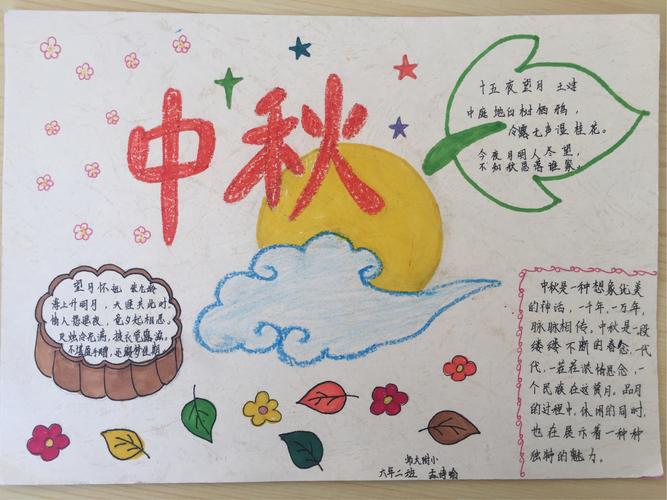 中秋
十五夜望月 王建
中庭地白树栖鸦，
冷露无声湿桂花。
今夜月明人尽望，
不知秋思落谁家。
望月怀远 张九龄
海上升明月，天涯共此时
情人怨遥夜，竟夕起相思。
灭烛怜光满，披衣觉露滋，
不堪盈手赠，还寝梦佳期
中秋是一种想象优美
的神话，一千年，一万年，
脉脉相传，中秋是一段
缕缕不断的眷念，一代
代，一茬茬浓情思念，一
个民族在这赏月，品月
的过程中，休闲的同时，
也在展示着一种种
独特的魅力。
大附小
六年二班 孟诗瑜